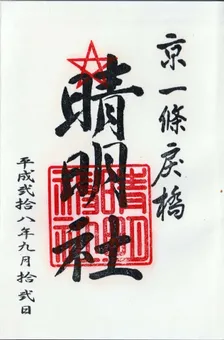 京一條戻橋
晴明社
平成弐拾八年九月拾弐日